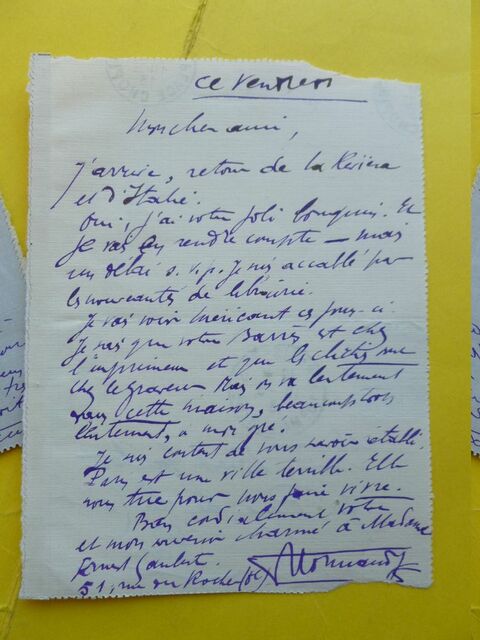 ce vendredi
Mon cher ami,
J'arrive, retour de la Riviera
et d'Italie.
Oui, j'ai votre joli bouquin. Et
je vais en rendre compte — mais
un délai s.v.p. Je suis accablé par
les nouveautés de librairie.
Je vais voir Méricant ces jours-ci.
Je sais que votre Barrès est chez
l'imprimeur et que les clichés sont
chez le graveur. Mais on va lentement
dans cette maison, beaucoup trop
lentement, à mon gré.
Je suis content de vous savoir établi.
Paris est une ville terrible. Elle
nous tue pour nous faire vivre.
Bien cordialement votre
et mon souvenir charmé à Madame
Ernest Gaubert.
51, rue du Rocher (8e)